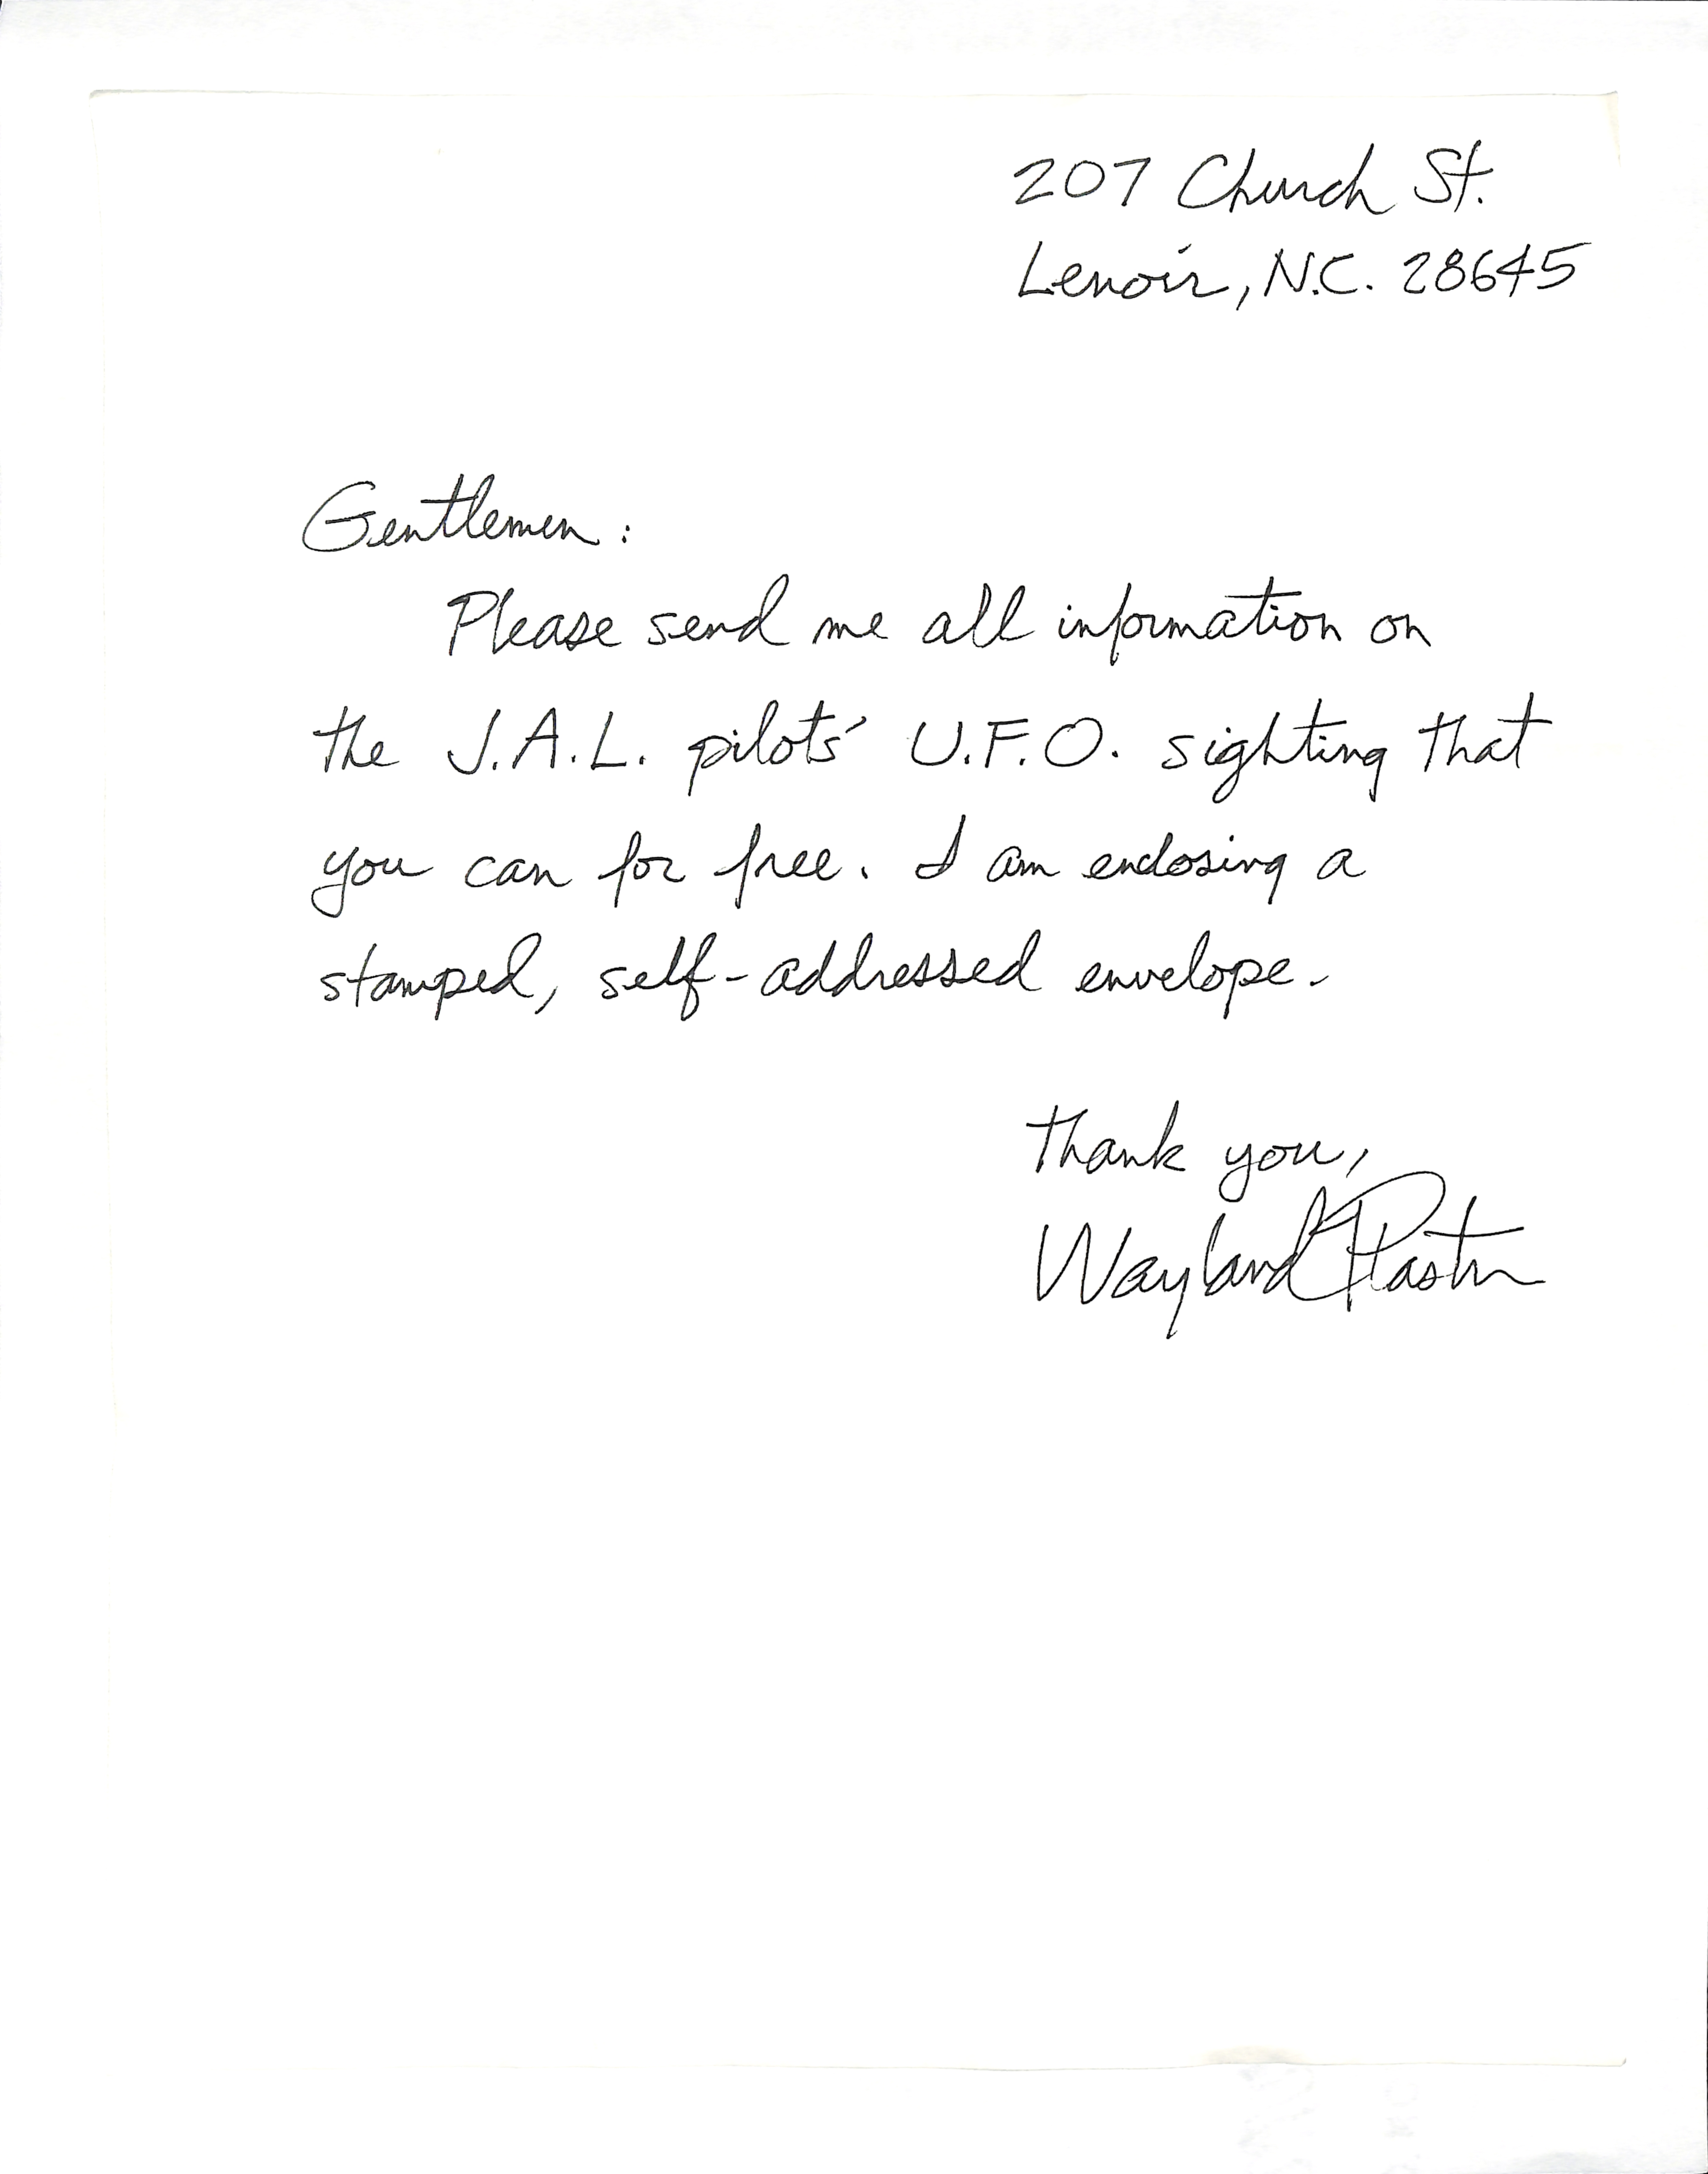 207 Church St.
Lenoir, N.C. 28645
Gentlemen:
Please send me all information on
the J.A.L. pilots' U.F.O. sighting that
you can for free. I am enclosing a
stamped, self-addressed envelope.
Thank you,
Wayland